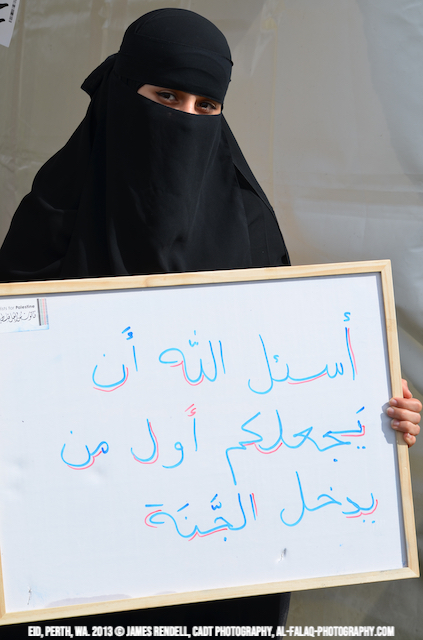 أَسئل اللّٰه أَن
يَجعلكم أَول من
يدخل الجَّنَة
EID, PERTH, WA. 2013 © JAMES RENDELL, CADT PHOTOGRAPHY, AL-FALAQ-PHOTOGRAPHY.COM